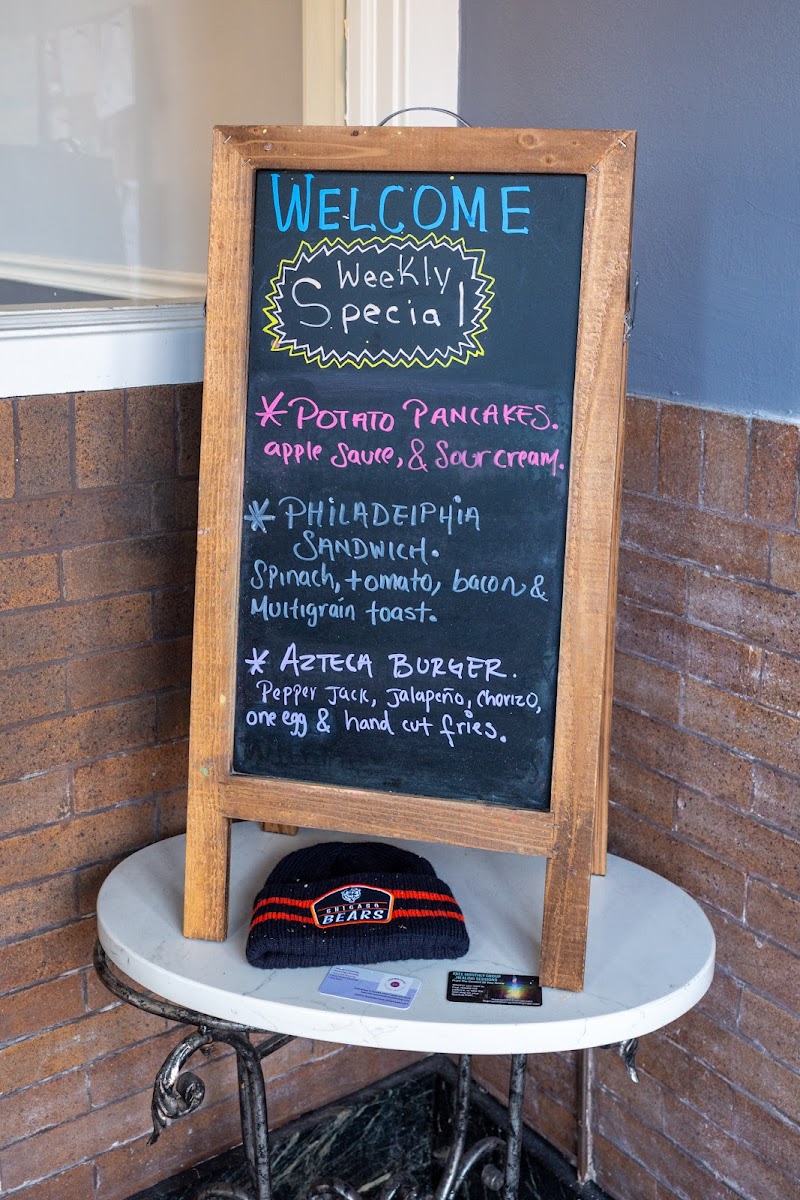 WELCOME
Weekly
Special
* POTATO PANCAKES.
apple sauce, & sour cream.
* PHILADElPHiA
SANDWICH.
Spinach, tomato, bacon &
Multigrain toast.
* AZTECA BURGER.
Pepper Jack, jalapeño, chorizo,
one egg & hand cut fries.
CHICAGO
BEARS
HEALING SESSIONS